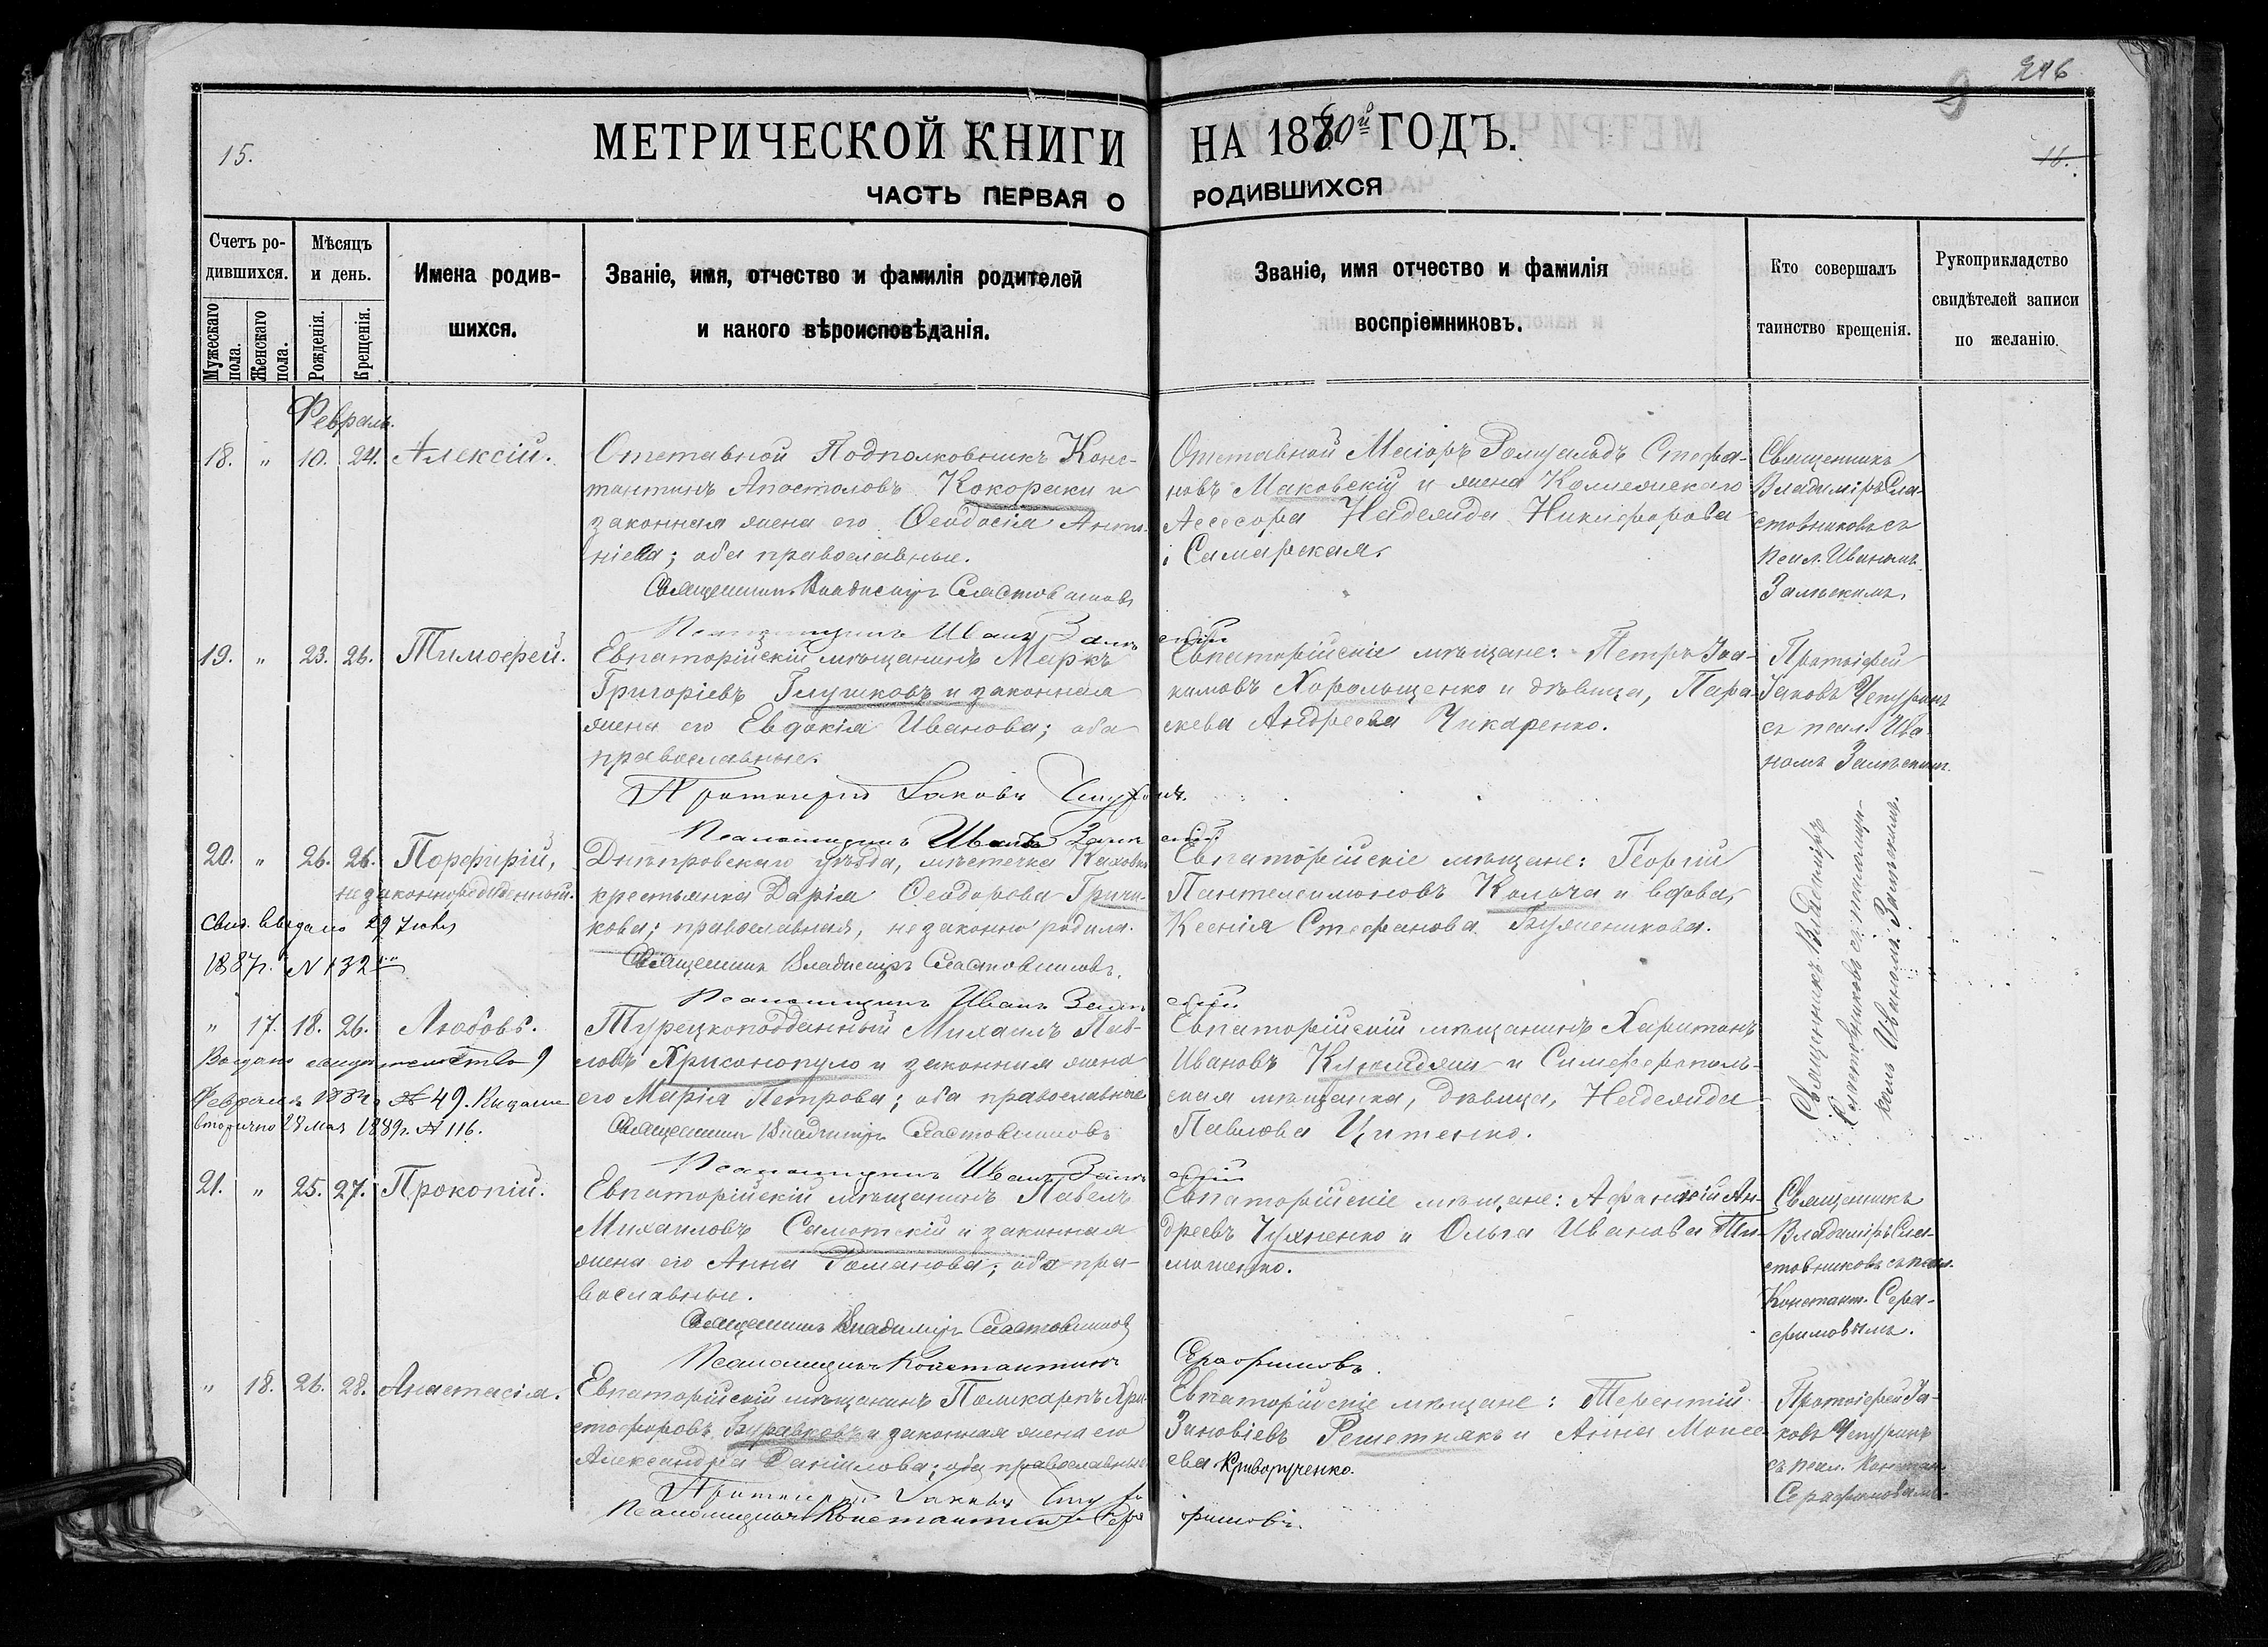 246
9
15.
МЕТРИЧЕСКОЙ КНИГИ НА 1880й ГОДЪ.
16.
ЧАСТЬ ПЕРВАЯ О РОДИВШИХСЯ
Счетъ ро-
дившихся.
Мужескаго пола.
Женскаго пола.
Мѣсяцъ
и день.
Рожденія.
Крещенія.
Имена родив-
шихся.
Званіе, имя, отчество и фамилія родителей
и какого вѣроисповѣданія.
Званіе, имя отчество и фамилія
воспріемниковъ.
Кто совершалъ
таинство крещенія.
Рукоприкладство
свидѣтелей записи
по желанію.
Февраль.
18. " 10. 24. Алексій.
Отставной Подполковникъ Конс-
тантинъ Апостоловъ Кокораки и
законная жена его Ѳеодосія Анто-
ніева; оба православные.
Священникъ Владиміръ Сластовниковъ
Псаломщикъ Иванъ Залѣскій
Отставной Маіоръ Ромуальдъ Стефа-
новъ Маковскій и жена Коллежскаго
Ассесора Надежда Никифорова
Самарская.
Священникъ
Владиміръ Сла-
стовниковъ съ
псал. Иваномъ
Залѣскимъ.
19. " 23. 26. Тимоѳей.
Евпаторійскій мѣщанинъ Маркъ
Григоріевъ Глушковъ и законная
жена его Евдокія Иванова; оба
православные.
Протоіерей Іаковъ Чепуринъ.
Псаломщикъ Иванъ Залѣскій
Евпаторійскіе мѣщане: Петръ Іоа-
кимовъ Хорольщенко и дѣвица, Пара-
скева Андреева Чикаренко.
Протоіерей
Іаковъ Чепуринъ
съ псал. Ива-
номъ Залѣскимъ.
20. " 26. 26. Порфирій,
незаконнорожденный.
Свид. выдано 29 Іюля
1887г. N 132
Днѣпровскаго уѣзда, мѣстечка Каховки
крестьянка Дарія Ѳеодорова Гричи-
кова; православная, незаконно родила.
Священникъ Владиміръ Сластовниковъ.
Псаломщикъ Иванъ Залѣскій
Евпаторійскіе мѣщане: Георгій
Пантелеимоновъ Кольча и вдова,
Ксенія Стефанова Бужениκова.
Священникъ Владиміръ
Сластовниковъ съ псаломщи-
комъ Иваномъ Залѣскимъ.
" 17. 18. 26. Любовь.
Выдано свидѣтельство 9
Февраля N 49. Выдано
вторично 28 Мая 1889г. N 116.
Турецкоподданный Михаилъ Пав-
ловъ Хрисонопуло и законная жена
его Марія Петрова; оба православные
Священникъ Владиміръ Сластовниковъ
Псаломщикъ Иванъ Залѣскій
Евпаторійскій мѣщанинъ Харитонъ
Ивановъ и Симферополь-
ская мѣщанка, дѣвица, Надежда
Павлова Цитенко.
21. " 25. 27. Прокопій.
Евпаторійскій мѣщанинъ Павелъ
Михаиловъ Самотскій и законная
жена его Анна Романова; оба пра-
вославные.
Священникъ Владиміръ Сластовниковъ
Псаломщикъ Константинъ Серафимовъ.
Евпаторійскіе мѣщане: Афанасій Ан-
дреевъ Чухненко и Ольга Иванова Ти-
мошенко.
Священникъ
Владиміръ Сла-
стовниковъ съ псал.
Констант. Сера-
фимовымъ.
" 18. 26. 28. Анастасія.
Евпаторійскій мѣщанинъ Поликарпъ Хри-
стофоровъ Буравковъ и законная жена его
Александра Даніилова; оба православные
Протоіерей Іаковъ Чепуринъ
Псаломщикъ Константинъ Серафимовъ.
Евпаторійскіе мѣщане: Терентій
Зиновіевъ Решетнякъ и Анна Моисе-
ева Криворученко.
Протоіерей Іа-
ковъ Чепуринъ
съ псал. Констан.
Серафимовымъ.